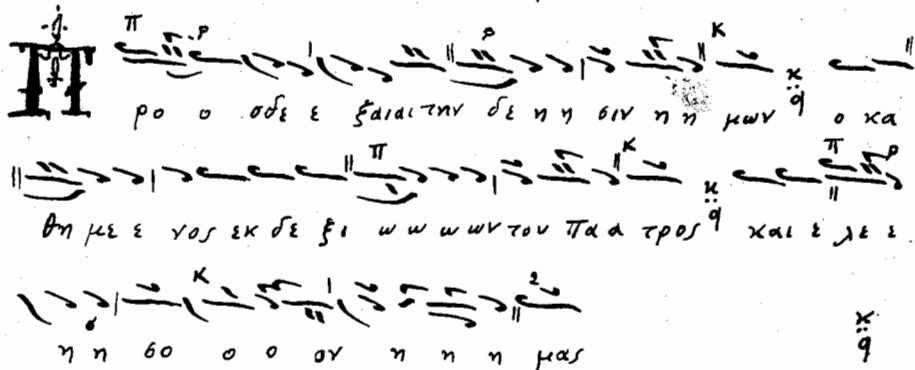 Π ρ Κ
Π ρο ο σδε ε ξαιαι την δε η η σιν η η μων ο κα
Π Κ Π ρ
θη με ε νος εκ δε ξι ω ω ω ων του Πα α τρος και ε λε ε
Κ
η η σο ο ο ον η η η μας